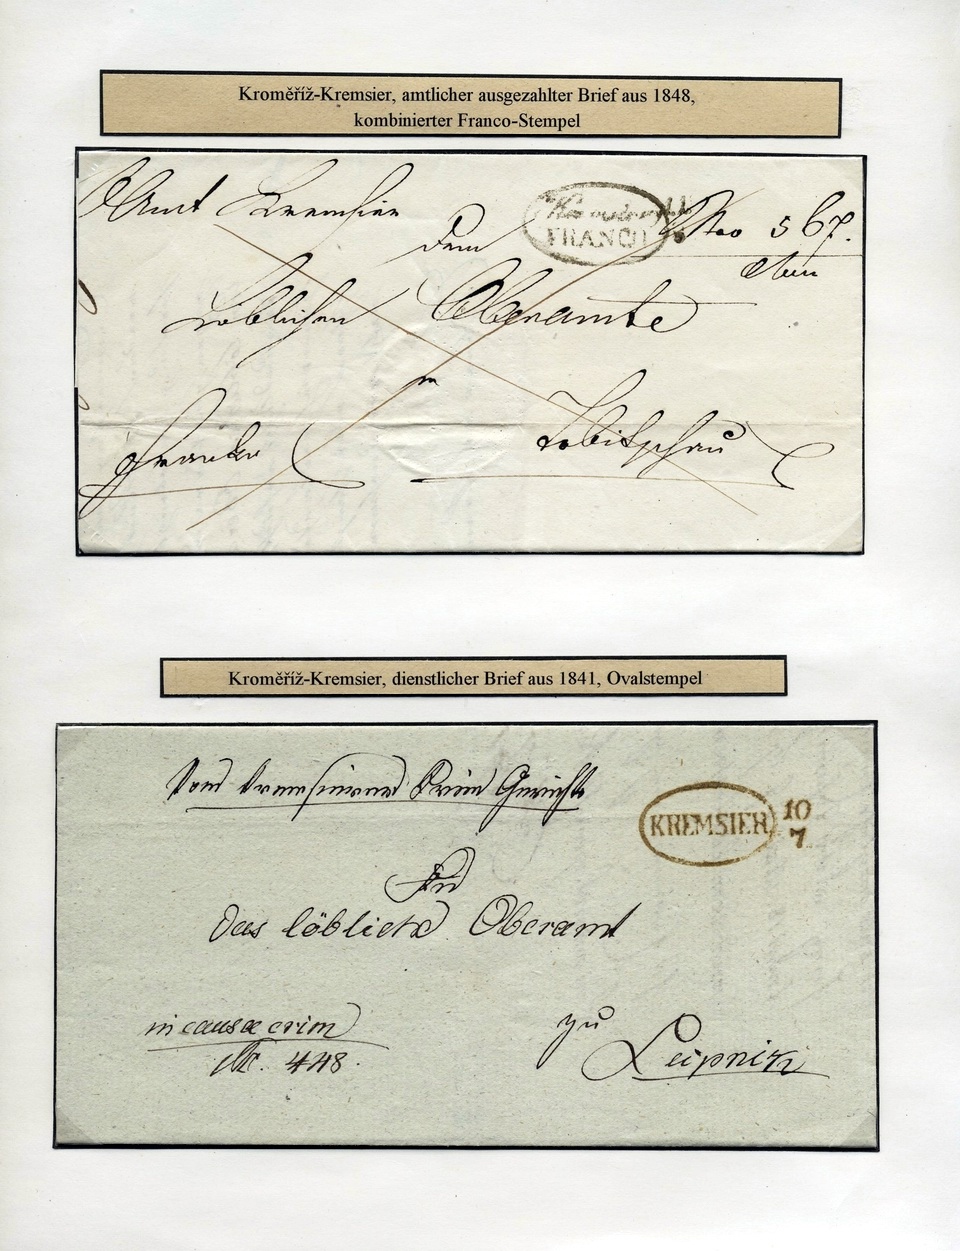 Kroměříž-Kremsier, amtlicher ausgezahlter Brief aus 1848,
kombinierter Franco-Stempel
Amt Kremsier
Dem
FRANCO
Nro 567.
Löblichen Oberamte
in
Franko
Tobitschau
Kroměříž-Kremsier, dienstlicher Brief aus 1841, Ovalstempel
Vom Kremsierer Krim Gerichte
KREMSIER 10
7
An
Das löbliche Oberamt
in causa crim
Nr. 448.
zu
Leipnik